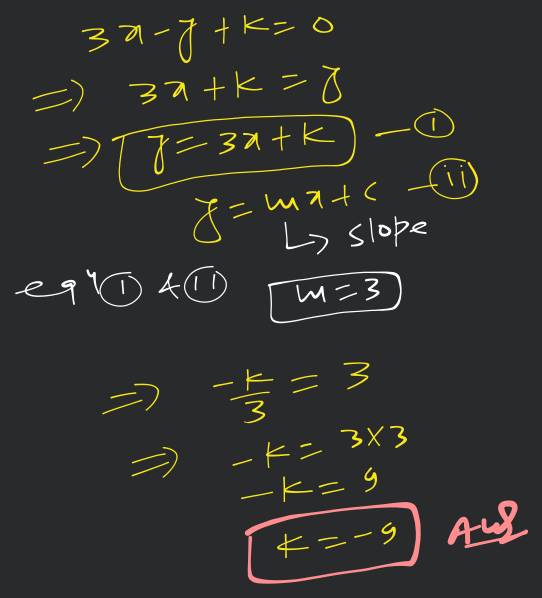 3x-y+k=0
=> 3x+k=y
=> y=3x+k -(i)
y=mx+c -(ii)
↳ slope
eqⁿ (i) & (ii) m=3
=> -k/3 = 3
=> -k= 3×3
-k= 9
k=-9 Ans